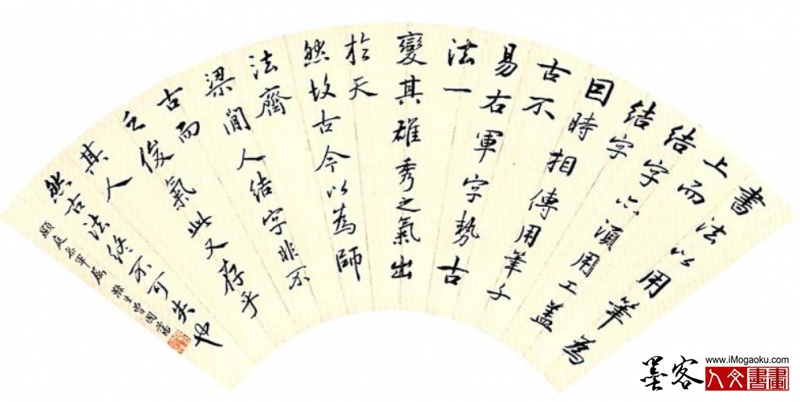 書法以用筆為
上而
結字亦須用工蓋
結字
因時相傳用筆千
古不
易右軍字勢古
法一
變其雄秀之氣出
於天
然故古今以為師
法齊
梁間人結字非不
古而
乏俊氣此又存乎
其人
然古法終不可失也
滌生曾國藩
墨客
www.iMogaoku.com
人文書畫